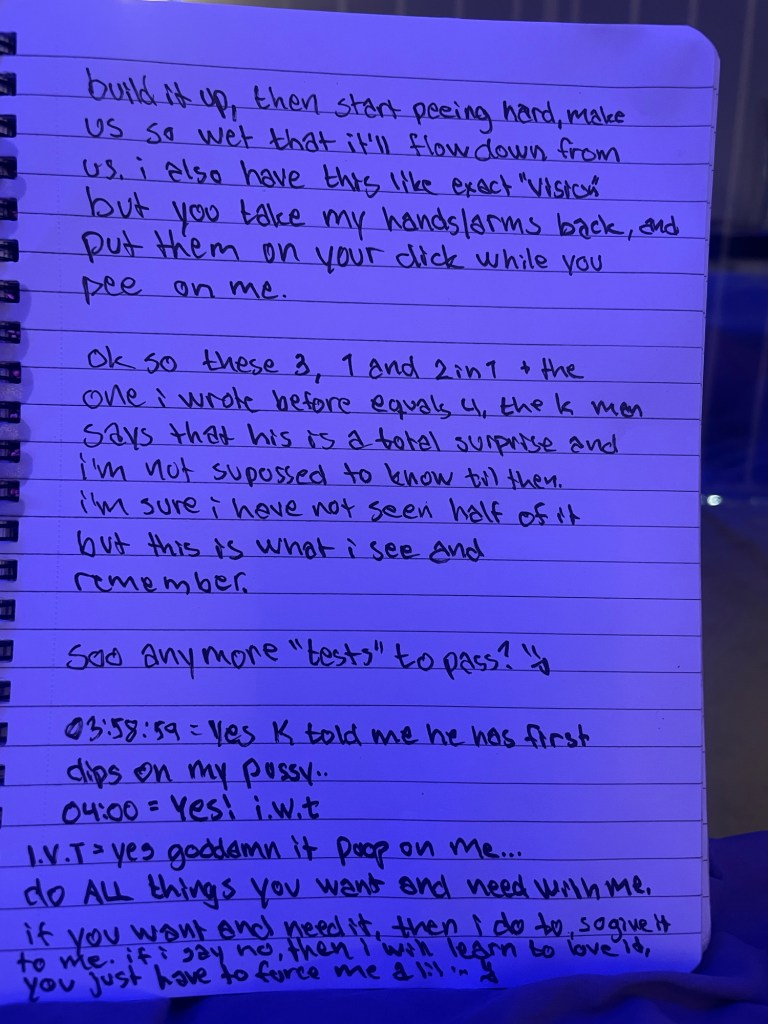 build it up, then start peeing hard, make
us so wet that it'll flow down from
us. i also have this like exact "vision"
but you take my hands/arms back, and
put them on your dick while you
pee on me.
ok so these 3, 1 and 2 in 1 + the
one i wrote before equals 4, the k man
says that his is a total surprise and
i'm not supossed to know til then.
i'm sure i have not seen half of it
but this is what i see and
remember.
Soo anymore "tests" to pass?
03:58:59 = Yes K told me he has first
dips on my pussy..
04:00 = Yes! i.w.t
I.V.T = yes goddamn it poop on me...
do ALL things you want and need with me.
if you want and need it, then i do to, so give it
to me. if i say no, then i will learn to love it,
you just have to force me a lil